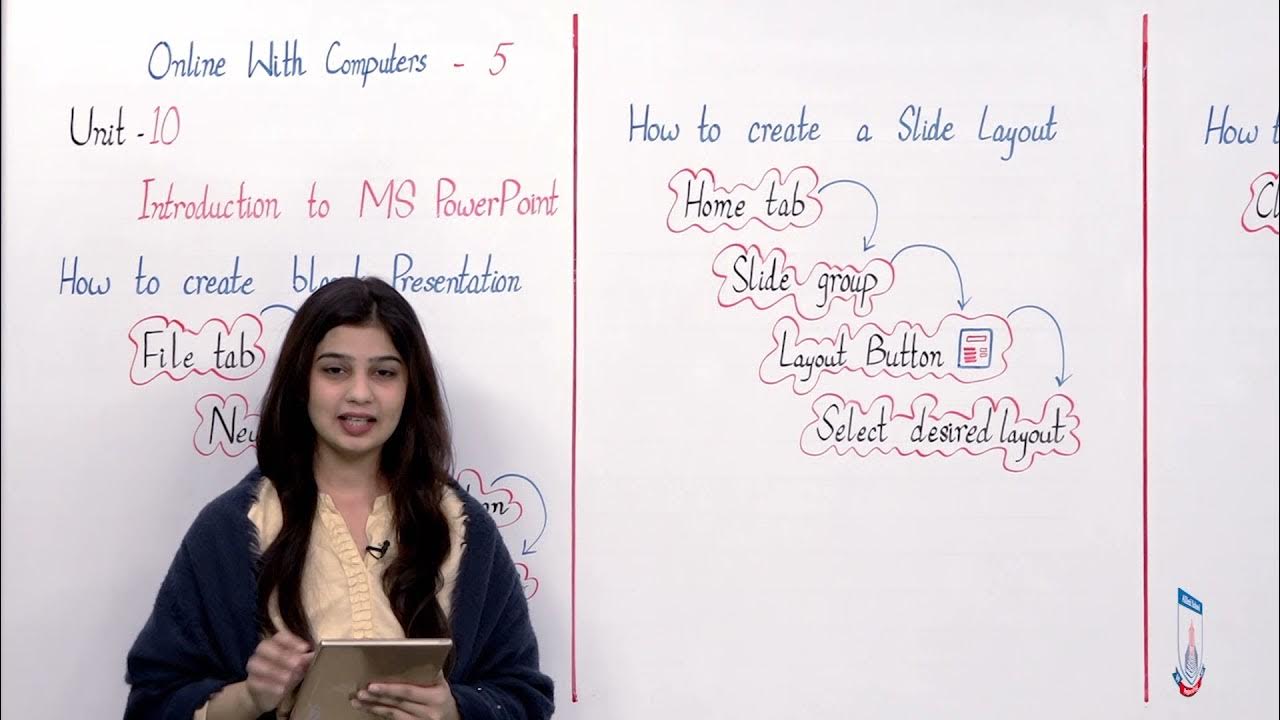 Online With Computers - 5
Unit - 10
Introduction to MS PowerPoint
How to create Presentation
File tab
How to create a Slide Layout
Home tab
Slide group
Layout Button
Select desired layout
How